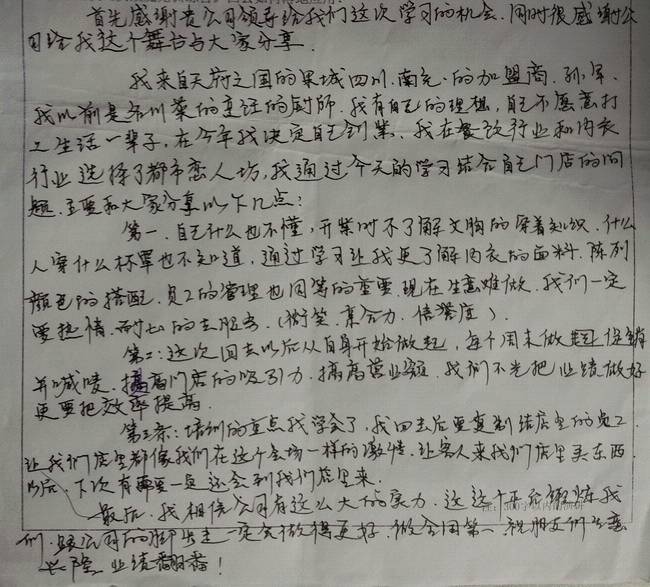 首先感谢贵公司领导给我们这次学习的机会.同时很感谢公
司给我这个舞台与大家分享.
我来自天府之国的果城四川.南充.的加盟商.孙军.
我以前是名川菜的烹饪的厨师.我有自己的理想,自己不愿意打
工生活一辈子,在今年我决定自己创业.我在餐饮行业和内衣
行业选择了都市恋人坊,我通过今天的学习结合自己门店的问
题.主要和大家分享以下几点:
第一.自己什么也不懂,开业时不了解文胸的穿着知识.什么
人穿什么杯罩也不知道,通过学习让我更了解内衣的面料.陈列
颜色的搭配.员工的管理也同等的重要现在生意难做.我们一定
要热情.耐心的去服务.(微笑.亲合力.信誉度).
第二:这次回去以后从自身开始做起,每个周末做促销
并喊唛.提高门店的吸引力.提高营业额.我们不光把业绩做好
更要把效率提高.
第三条:培训的重点我学会了.我回去后要复制给店里的员工
让我们店里都像我们在这个会场一样的激情.让客人来我们店里买东西
以后.下次有需要一定还会到我们店里来.
最后.我相信公司有这么大的实力.这个平台锻炼我
们.跟公司的脚步走一定会做得更好.做全国第一.祝朋友们生意
兴隆.业绩翻番!